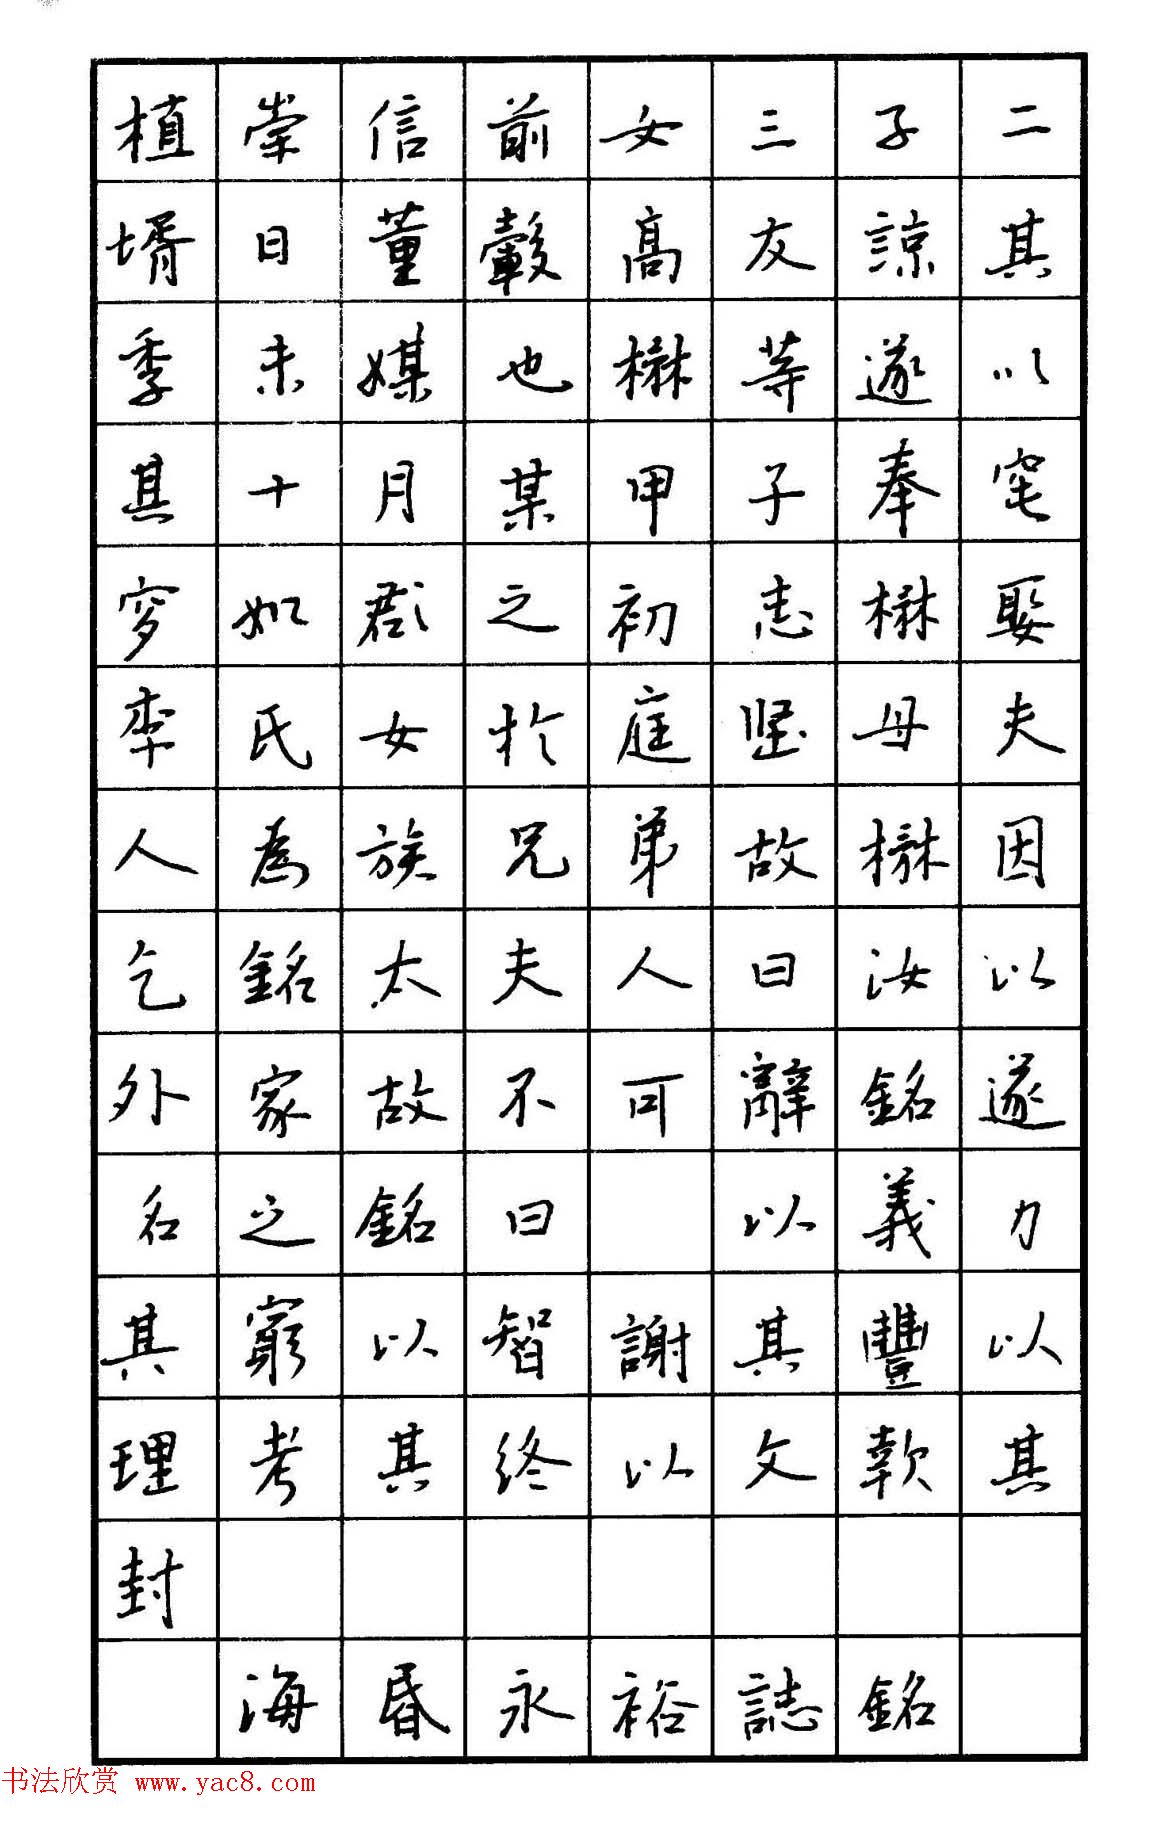 植崇信前女三子二
壻曰董轂高友諒其
季未媒也楙等遂以
其十月某甲子奉窀
穸如郡之初志楙娶
李氏女於庭堅母夫
人為族兄弟故楙因
乞銘太夫人曰汝以
外家故不可辭銘遂
名之銘曰 以義力
其窮以智謝其豐以
理考其終以文款其
封
海昏永裕誌銘
书法欣赏 www.yac8.com